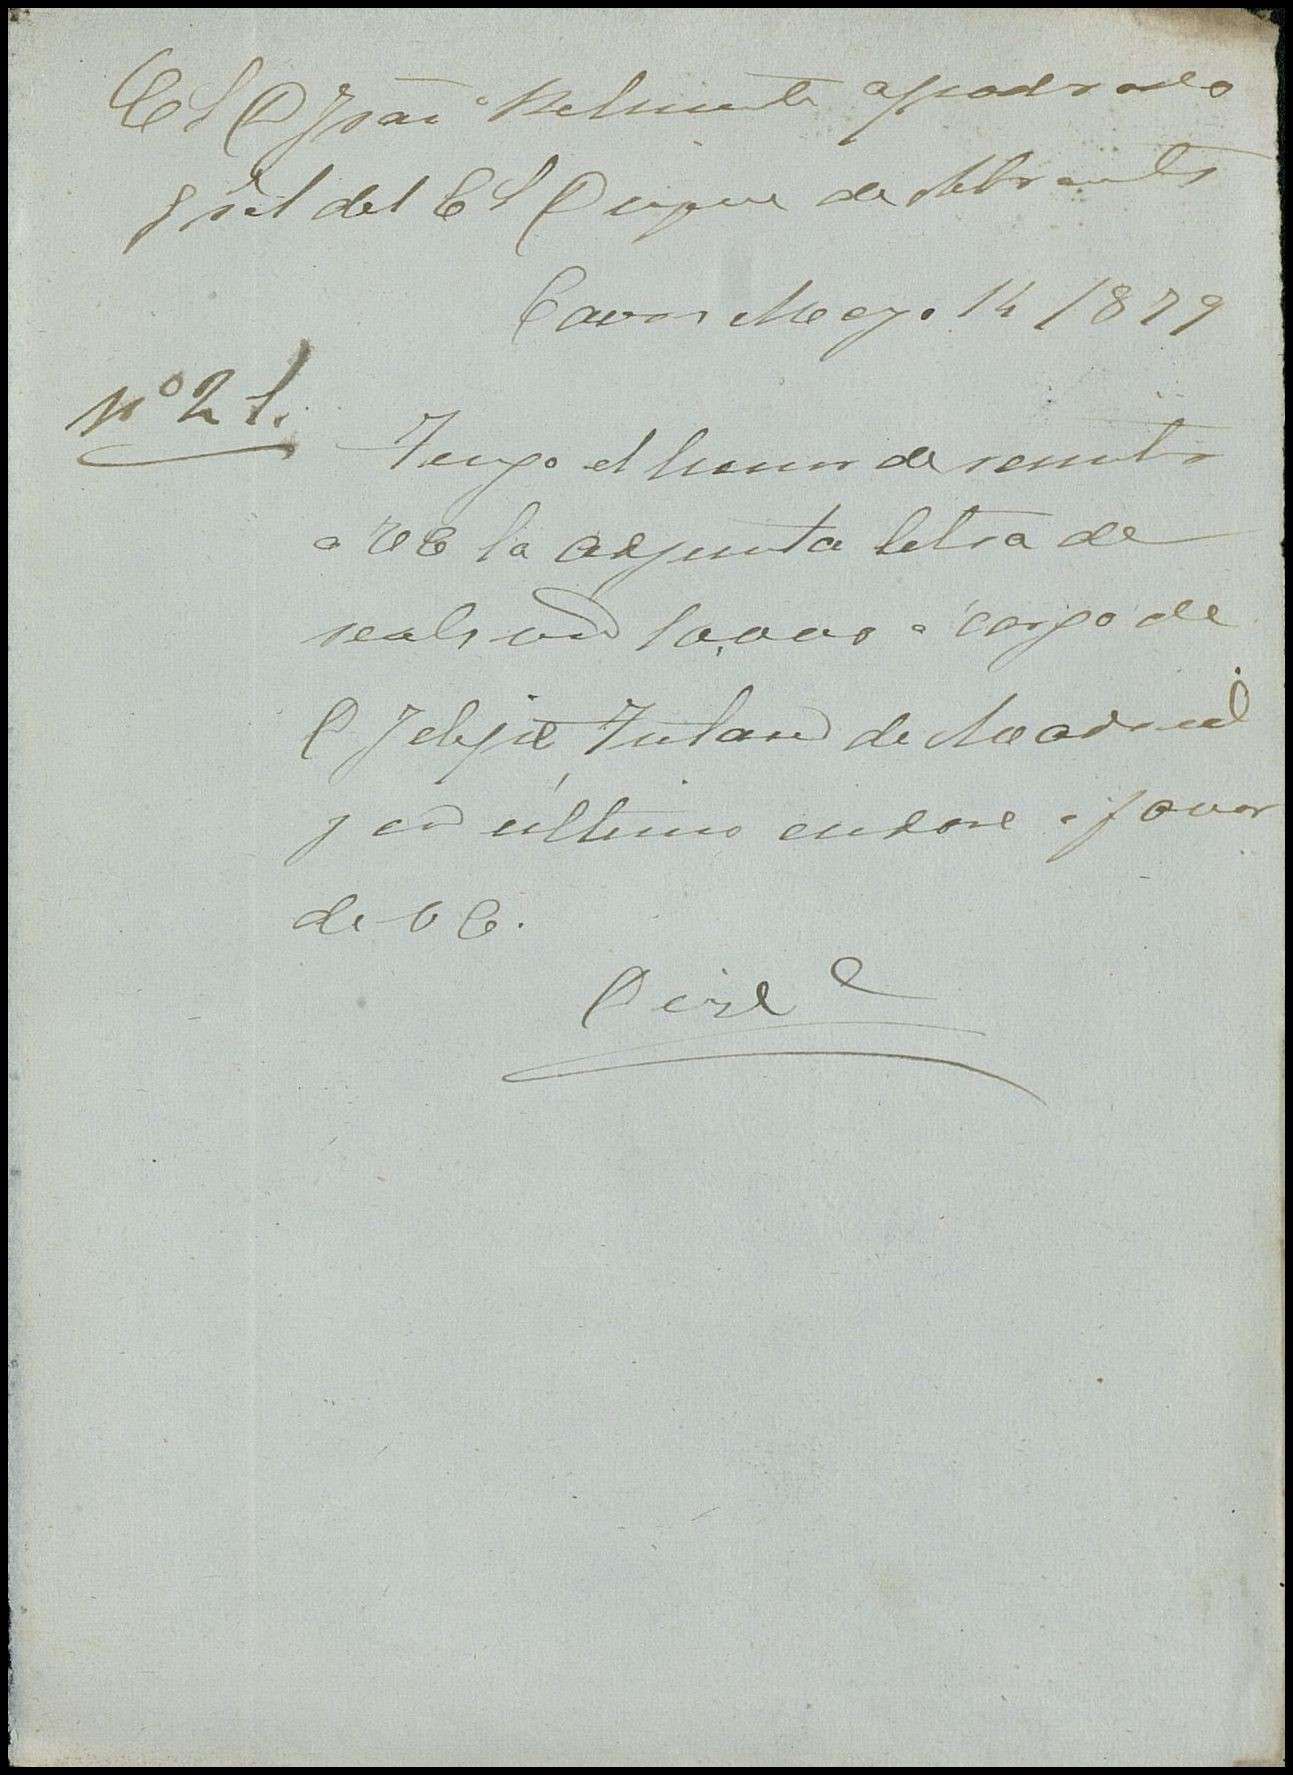 E S D Fran.co Belmonte apoderado
gral del E S Duque de Abrantes
Mayo 14 / 1879
Nº 21.
Tengo el honor de remitir
a VE la adjunta letra de
reales von 10,000 a cargo de
D Felipe de Madrid
y en último endose a favor
de V E.